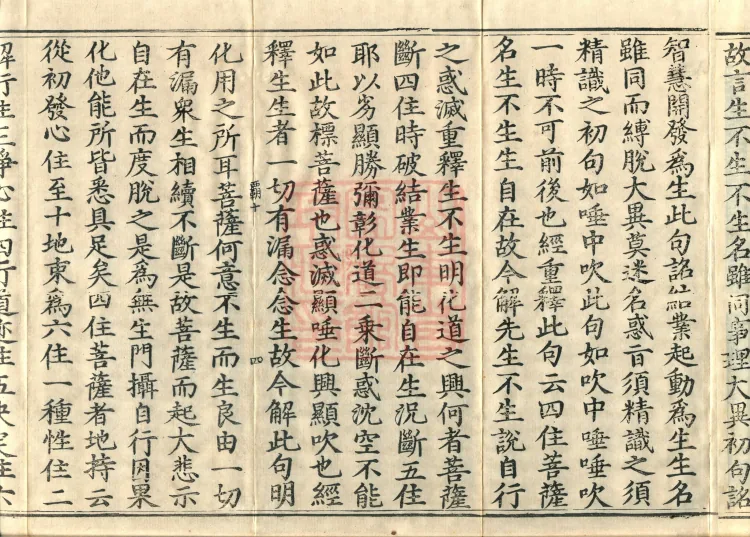 故言生不生不生名雖同事理大異初句詺
智慧開發為生此句詺結業起動為生生名
雖同而縛脫大異莫迷名惑旨須精識之須
精識之初句如唾中吹此句如吹中唾唾吹
一時不可前後也經重釋此句云四住菩薩
名生不生生自在故今解先生不生說自行
之惑滅重釋生不生明化道之興何者菩薩
斷四住時破結業生即能自在生況斷五住
耶以劣顯勝彌彰化道二乘斷惑沈空不能
如此故標菩薩也惑滅顯唾化興顯吹也經
釋生生者一切有漏念念生故今解此句明
霸十
四
化用之所耳菩薩何意不生而生良由一切
有漏眾生相續不斷是故菩薩而起大悲示
自在生而度脫之是為無生門攝自行因果
化他能所皆悉具足矣四住菩薩者地持云
從初發心住至十地束為六住一種性住二
解行住三淨心住四行道迹住五決定住六